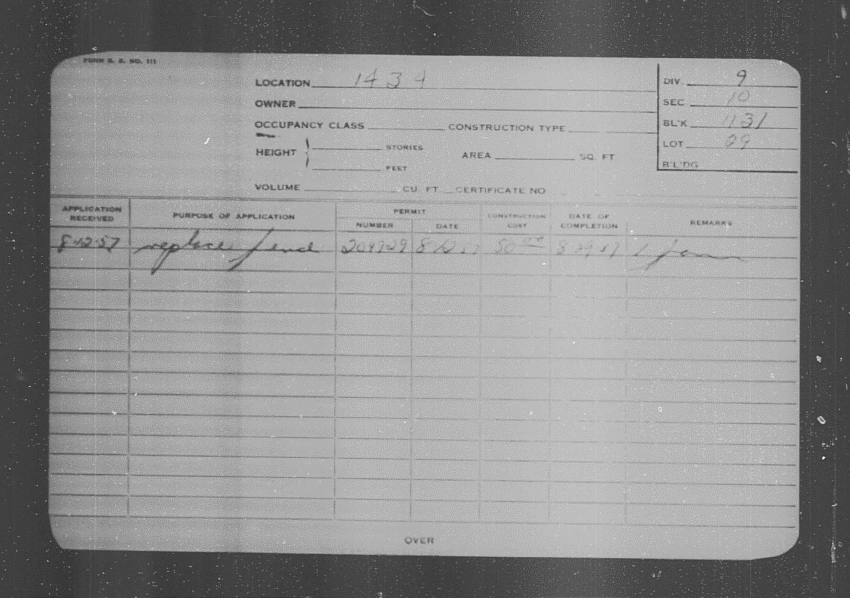 FORM B. S. NO. 111
LOCATION 1434
OWNER
OCCUPANCY CLASS CONSTRUCTION TYPE
HEIGHT STORIES
FEET
AREA SQ. FT.
VOLUME CU. FT. CERTIFICATE NO
DIV. 9
SEC. 10
BL'K 1131
LOT 29
B'L'DG
APPLICATION RECEIVED PURPOSE OF APPLICATION PERMIT NUMBER DATE CONSTRUCTION COST DATE OF COMPLETION REMARKS
8-12-57 replace 8-12-57 50 8-29-57 1
OVER